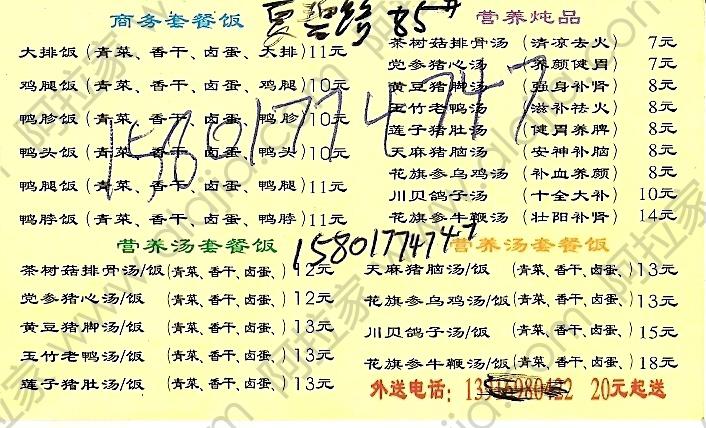 夏碧 路 85#
商务套餐饭
大排饭 (青菜、香干、卤蛋、大排) 11元
鸡腿饭 (青菜、香干、卤蛋、鸡腿) 10元
鸭胗饭 (青菜、香干、卤蛋、鸭胗) 10元
鸭头饭 (青菜、香干、卤蛋、鸭头) 10元
鸭腿饭 (青菜、香干、卤蛋、鸭腿) 11元
鸭脖饭 (青菜、香干、卤蛋、鸭脖) 11元
营养炖品
茶树菇排骨汤 (清凉去火) 7元
党参猪心汤 (养颜健胃) 7元
黄豆猪脚汤 (强身补肾) 8元
玉竹老鸭汤 (滋补祛火) 8元
莲子猪肚汤 (健胃养脾) 8元
天麻猪脑汤 (安神补脑) 8元
花旗参乌鸡汤 (补血养颜) 8元
川贝鸽子汤 (十全大补) 10元
花旗参牛鞭汤 (壮阳补肾) 14元
15801774747
15801774747
营养汤套餐饭
茶树菇排骨汤/饭 (青菜、香干、卤蛋、) 12元
党参猪心汤/饭 (青菜、香干、卤蛋、) 12元
黄豆猪脚汤/饭 (青菜、香干、卤蛋、) 13元
玉竹老鸭汤/饭 (青菜、香干、卤蛋、) 13元
莲子猪肚汤/饭 (青菜、香干、卤蛋、) 13元
营养汤套餐饭
天麻猪脑汤/饭 (青菜、香干、卤蛋、) 13元
花旗参乌鸡汤/饭 (青菜、香干、卤蛋、) 13元
川贝鸽子汤/饭 (青菜、香干、卤蛋、) 15元
花旗参牛鞭汤/饭 (青菜、香干、卤蛋、) 18元
外送电话: 20元起送
阿拉家 www.alajia.com